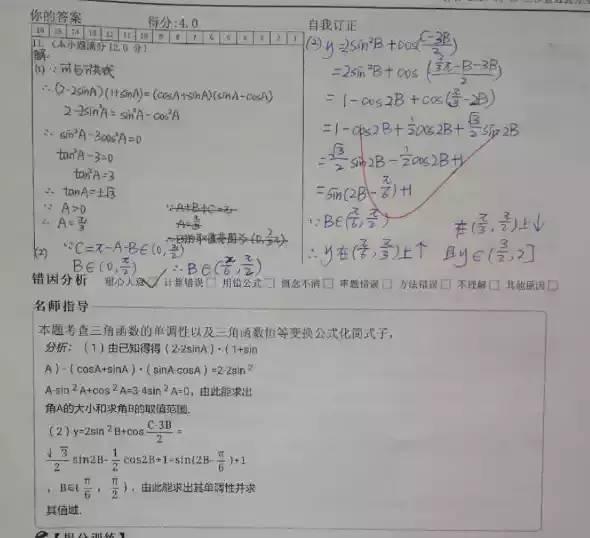 你的答案
得分:4.0
自我订正
11. (本小题满分12.0 分)
解:
(1) ∵ m与n共线
∴ (2-2sinA)(1+sinA)=(cosA+sinA)(sinA-cosA)
2-2sin²A = sin²A-cos²A
∴ sin²A-3cos²A=0
tan²A-3=0
tan²A=3
∴ tanA=±√3
∵ A>0
∴ A=π/3
∵A+B+C=π
A=π/3
(2) ∵C=π-A-B∈(0,π/2)
B∈(0,π/2) ∴B∈(π/6,π/2)
(2) y=2sin²B+cos(C-3B/2)
=2sin²B+cos(⅔π-B-3B/2)
=1-cos2B+cos(π/3-2B)
=1-cos2B+½cos2B+√3/2 sin2B
=√3/2 sin2B-½cos2B+1
=sin(2B-π/6)+1
∵B∈(π/6,π/2) 在(π/3,π/2)上↓
∴y在(π/6,π/3)上↑ 且y∈(3/2,2]
错因分析 粗心大意 计算错误 用错公式 概念不清 审题错误 方法错误 不理解 其他原因
名师指导
本题考查三角函数的单调性以及三角函数恒等变换公式化简式子,
分析:(1)由已知得得(2-2sinA)·(1+sin
A)-(cosA+sinA)·(sinA-cosA)=2-2sin ²
A-sin ² A+cos ² A=3-4sin ² A=0,由此能求出
角A的大小和求角B的取值范围.
(2)y=2sin ² B+cos C-3B/2 =
√3/2 sin2B-1/2 cos2B+1=sin(2B-π/6)+1
,B∈(π/6,π/2),由此能求出其单调性并求
其值域.
【提分训练】